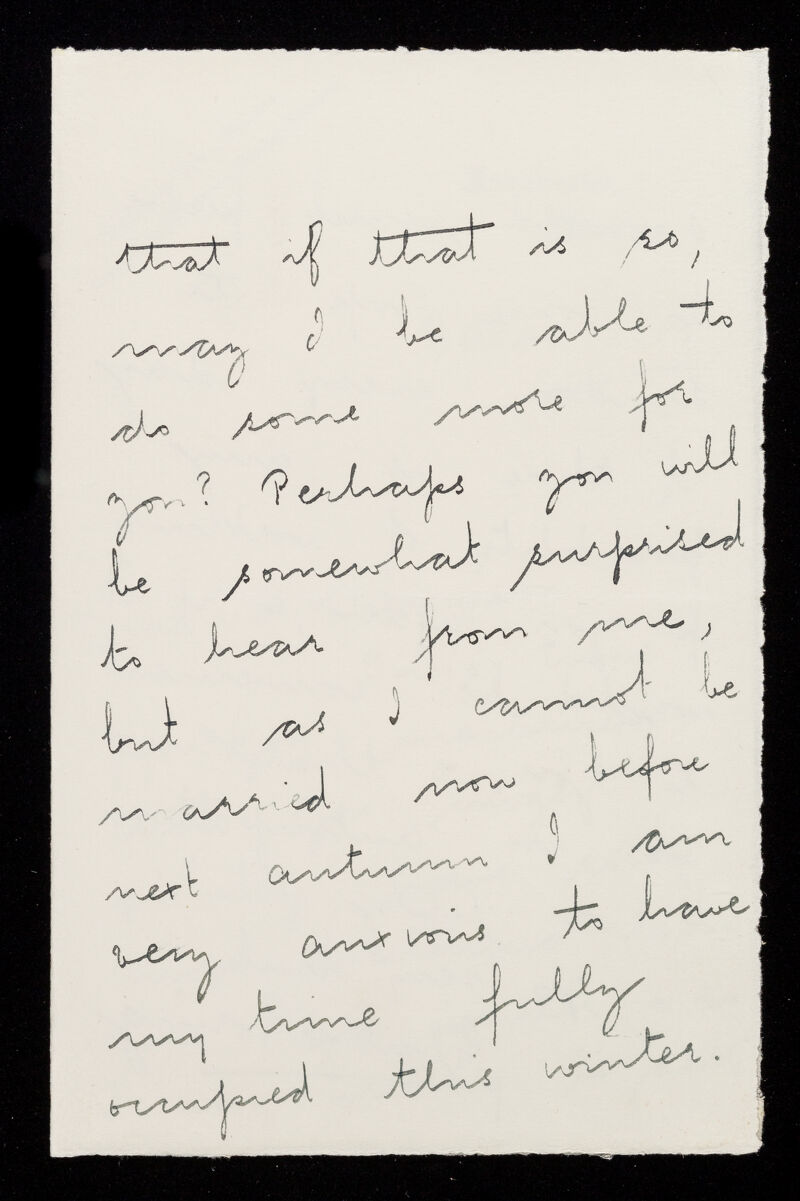 that if that is so,
may I be able to
do some more for
you? Perhaps you will
be somewhat surprised
to hear from me,
but as I cannot be
married now before
next autumn I am
very anxious to have
my time fully
occupied this winter.